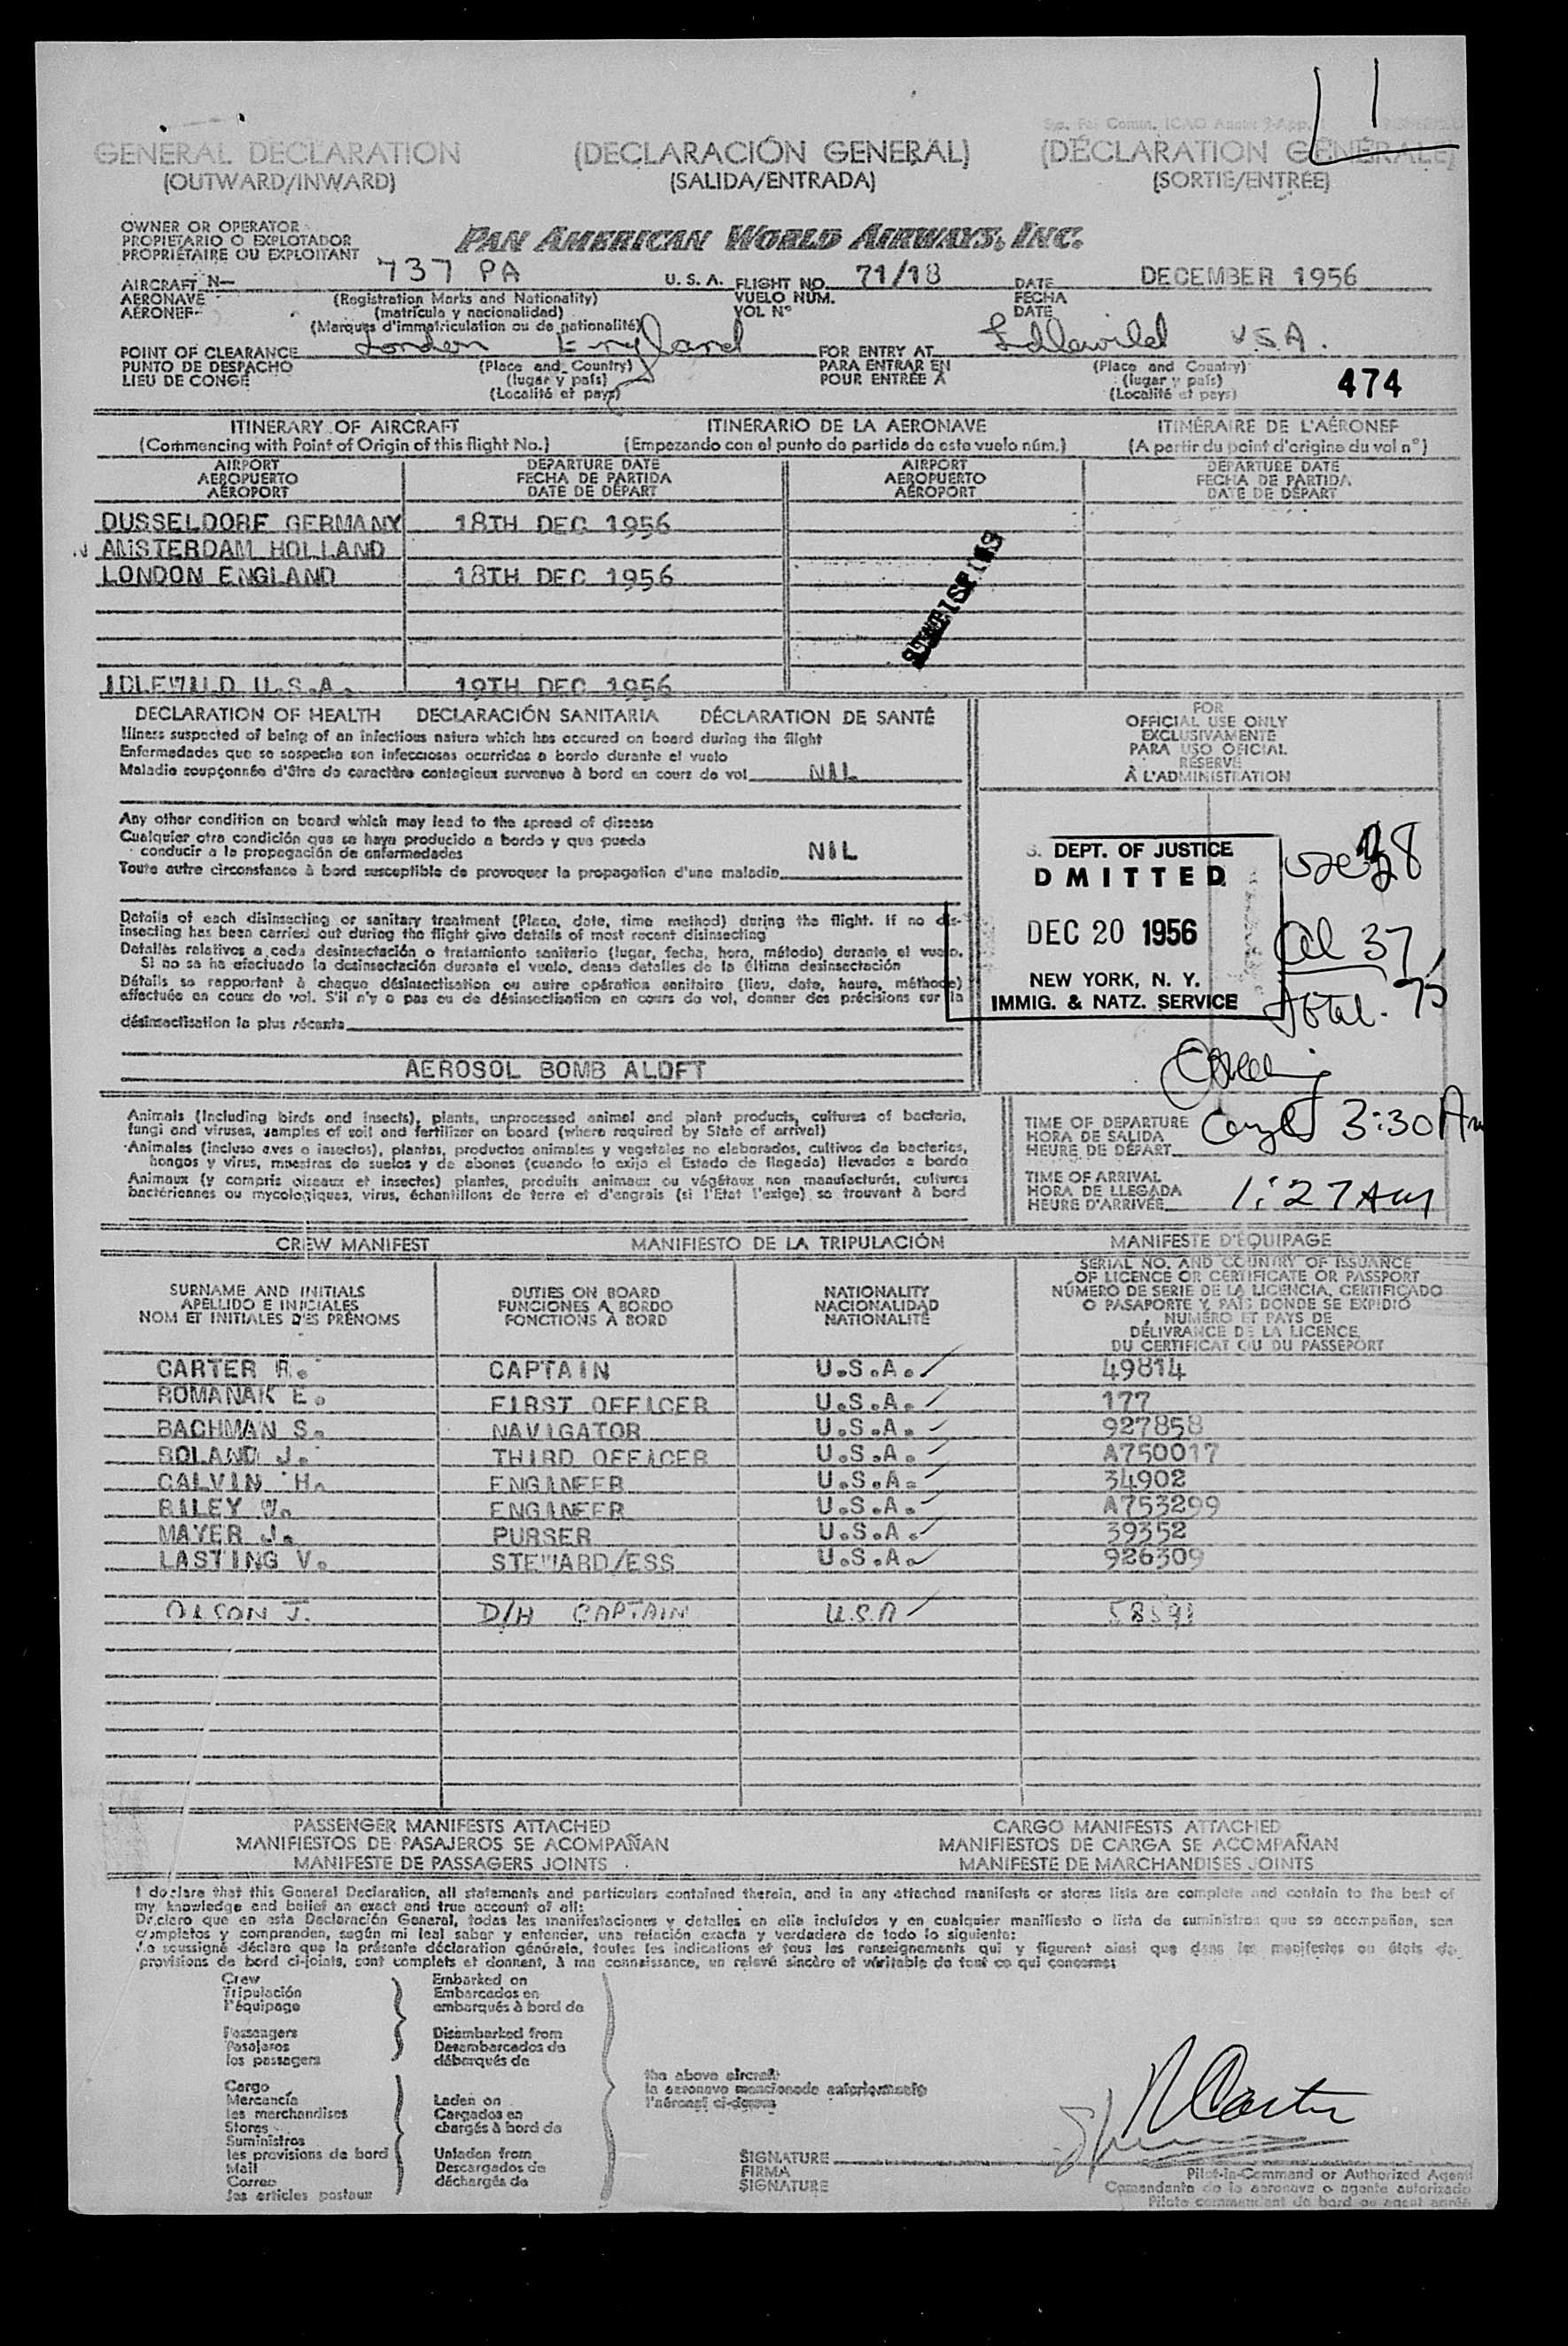 GENERAL DECLARATION (DECLARACIÓN GENERAL) (DÉCLARATION GÉNÉRALE)
(OUTWARD/INWARD) (SALIDA/ENTRADA) (SORTIE/ENTRÉE)
OWNER OR OPERATOR
PROPIETARIO O EXPLOTADOR
PROPRIÉTAIRE OU EXPLOITANT
PAN AMERICAN WORLD AIRWAYS, INC.
AIRCRAFT N— 737 PA U. S. A. FLIGHT NO. 71/18 DATE DECEMBER 1956
AERONAVE (Registration Marks and Nationality) VUELO NÚM. FECHA
AÉRONEF (matrícula y nacionalidad) VOL Nº DATE
(Marques d'immatriculation ou de nationalité)
POINT OF CLEARANCE London England FOR ENTRY AT Idlewild USA.
PUNTO DE DESPACHO (Place and Country) PARA ENTRAR EN (Place and Country)
LIEU DE CONGÉ (lugar y país) POUR ENTRÉE À (lugar y país)
(Localité et pays) (Localité et pays)
474
ITINERARY OF AIRCRAFT ITINERARIO DE LA AERONAVE ITINÉRAIRE DE L'AÉRONEF
(Commencing with Point of Origin of this flight No.) (Empezando con el punto de partida de este vuelo núm.) (A partir du point d'origine du vol nº)
AIRPORT DEPARTURE DATE AIRPORT DEPARTURE DATE
AEROPUERTO FECHA DE PARTIDA AEROPUERTO FECHA DE PARTIDA
AÉROPORT DATE DE DÉPART AÉROPORT DATE DE DÉPART
DUSSELDORF GERMANY 18TH DEC 1956
AMSTERDAM HOLLAND
LONDON ENGLAND 18TH DEC 1956
IDLEWILD U.S.A. 19TH DEC 1956
DECLARATION OF HEALTH DECLARACIÓN SANITARIA DÉCLARATION DE SANTÉ
Illness suspected of being of an infectious nature which has occured on board during the flight
Enfermedades que se sospecha son infecciosas ocurridas a bordo durante el vuelo
Maladie soupçonnée d'être de caractère contagieux survenue à bord en cours de vol NIL
Any other condition on board which may lead to the spread of disease
Cualquier otra condición que se haya producido a bordo y que pueda
conducir a la propagación de enfermedades NIL
Toute autre circonstance à bord susceptible de provoquer la propagation d'une maladie
Details of each disinsecting or sanitary treatment (Place, date, time method) during the flight. If no dis-
insecting has been carried out during the flight give details of most recent disinsecting
Detalles relativos a cada desinsectación o tratamiento sanitario (lugar, fecha, hora, método) durante el vuelo.
Si no se ha efectuado la desinsectación durante el vuelo, dense detalles de la última desinsectación
Détails se rapportant à chaque désinsectisation ou autre opération sanitaire (lieu, date, heure, méthode)
effectuée en cours de vol. S'il n'y a pas eu de désinsectisation en cours de vol, donner des précisions sur la
désinsectisation la plus récente
AEROSOL BOMB ALOFT
FOR
OFFICIAL USE ONLY
EXCLUSIVAMENTE
PARA USO OFICIAL
RÉSERVÉ
À L'ADMINISTRATION
S. DEPT. OF JUSTICE
DMITTED
DEC 20 1956
NEW YORK, N. Y.
IMMIG. & NATZ. SERVICE
Al 37
Total. 75
Animals (Including birds and insects), plants, unprocessed animal and plant products, cultures of bacteria,
fungi and viruses, samples of soil and fertilizer on board (where required by State of arrival)
Animales (incluso aves e insectos), plantas, productos animales y vegetales no elaborados, cultivos de bacterias,
hongos y virus, muestras de suelos y de abonos (cuando lo exija el Estado de llegada) llevados a bordo
Animaux (y compris oiseaux et insectes) plantes, produits animaux ou végétaux non manufacturés, cultures
bactériennes ou mycologiques, virus, échantillons de terre et d'engrais (si l'Etat l'exige) se trouvant à bord
TIME OF DEPARTURE
HORA DE SALIDA 3:30 Am
HEURE DE DÉPART
TIME OF ARRIVAL
HORA DE LLEGADA 1:27 AM
HEURE D'ARRIVÉE
CREW MANIFEST MANIFIESTO DE LA TRIPULACIÓN MANIFESTE D'ÉQUIPAGE
SURNAME AND INITIALS DUTIES ON BOARD NATIONALITY SERIAL NO. AND COUNTRY OF ISSUANCE
APELLIDO E INICIALES FUNCIONES A BORDO NACIONALIDAD OF LICENCE OR CERTIFICATE OR PASSPORT
NOM ET INITIALES DES PRÉNOMS FONCTIONS À BORD NATIONALITÉ NÚMERO DE SERIE DE LA LICENCIA, CERTIFICADO
O PASAPORTE Y PAÍS DONDE SE EXPIDIÓ
NUMÉRO ET PAYS DE
DÉLIVRANCE DE LA LICENCE,
DU CERTIFICAT OU DU PASSEPORT
CARTER R. CAPTAIN U.S.A. 49814
ROMANAK E. FIRST OFFICER U.S.A. 177
BACHMAN S. NAVIGATOR U.S.A. 927858
BOLAND J. THIRD OFFICER U.S.A. A750017
CALVIN H. ENGINEER U.S.A. 34902
RILEY W. ENGINEER U.S.A. A753299
MAYER J. PURSER U.S.A. 39352
LASTING V. STEWARD/ESS U.S.A. 926309
OLSON J. D/H CAPTAIN U.S.A 58591
PASSENGER MANIFESTS ATTACHED CARGO MANIFESTS ATTACHED
MANIFIESTOS DE PASAJEROS SE ACOMPAÑAN MANIFIESTOS DE CARGA SE ACOMPAÑAN
MANIFESTE DE PASSAGERS JOINTS MANIFESTE DE MARCHANDISES JOINTS
I declare that this General Declaration, all statements and particulars contained therein, and in any attached manifests or stores lists are complete and contain to the best of
my knowledge and belief an exact and true account of all:
Declaro que en esta Declaración General, todas las manifestaciones y detalles en ella incluídos y en cualquier manifiesto o lista de suministros que se acompañan, son
completos y comprenden, según mi leal saber y entender, una relación exacta y verdadera de todo lo siguiente:
Je soussigné déclare que la présente déclaration générale, toutes les indications et tous les renseignements qui y figurent ainsi que dans les manifestes ou états de
provisions de bord ci-joints, sont complets et donnent, à ma connaissance, un relevé sincère et véritable de tout ce qui concerne:
Crew Embarked on
Tripulación Embarcados en
l'équipage embarqués à bord de
Passengers Disembarked from
Pasajeros Desembarcados de
les passagers débarqués de
the above aircraft
la aeronave mencionada anteriormente
l'aéronef ci-dessus
Cargo
Mercancía Laden on
les marchandises Cargados en
Stores chargés à bord de
Suministros
les provisions de bord Unladen from
Mail Descargados de
Correo déchargés de
les articles postaux
SIGNATURE R Carter
FIRMA
SIGNATURE
Pilot-in-Command or Authorized Agent
Comandante de la aeronave o agente autorizado
Pilote commandant de bord ou agent agréé